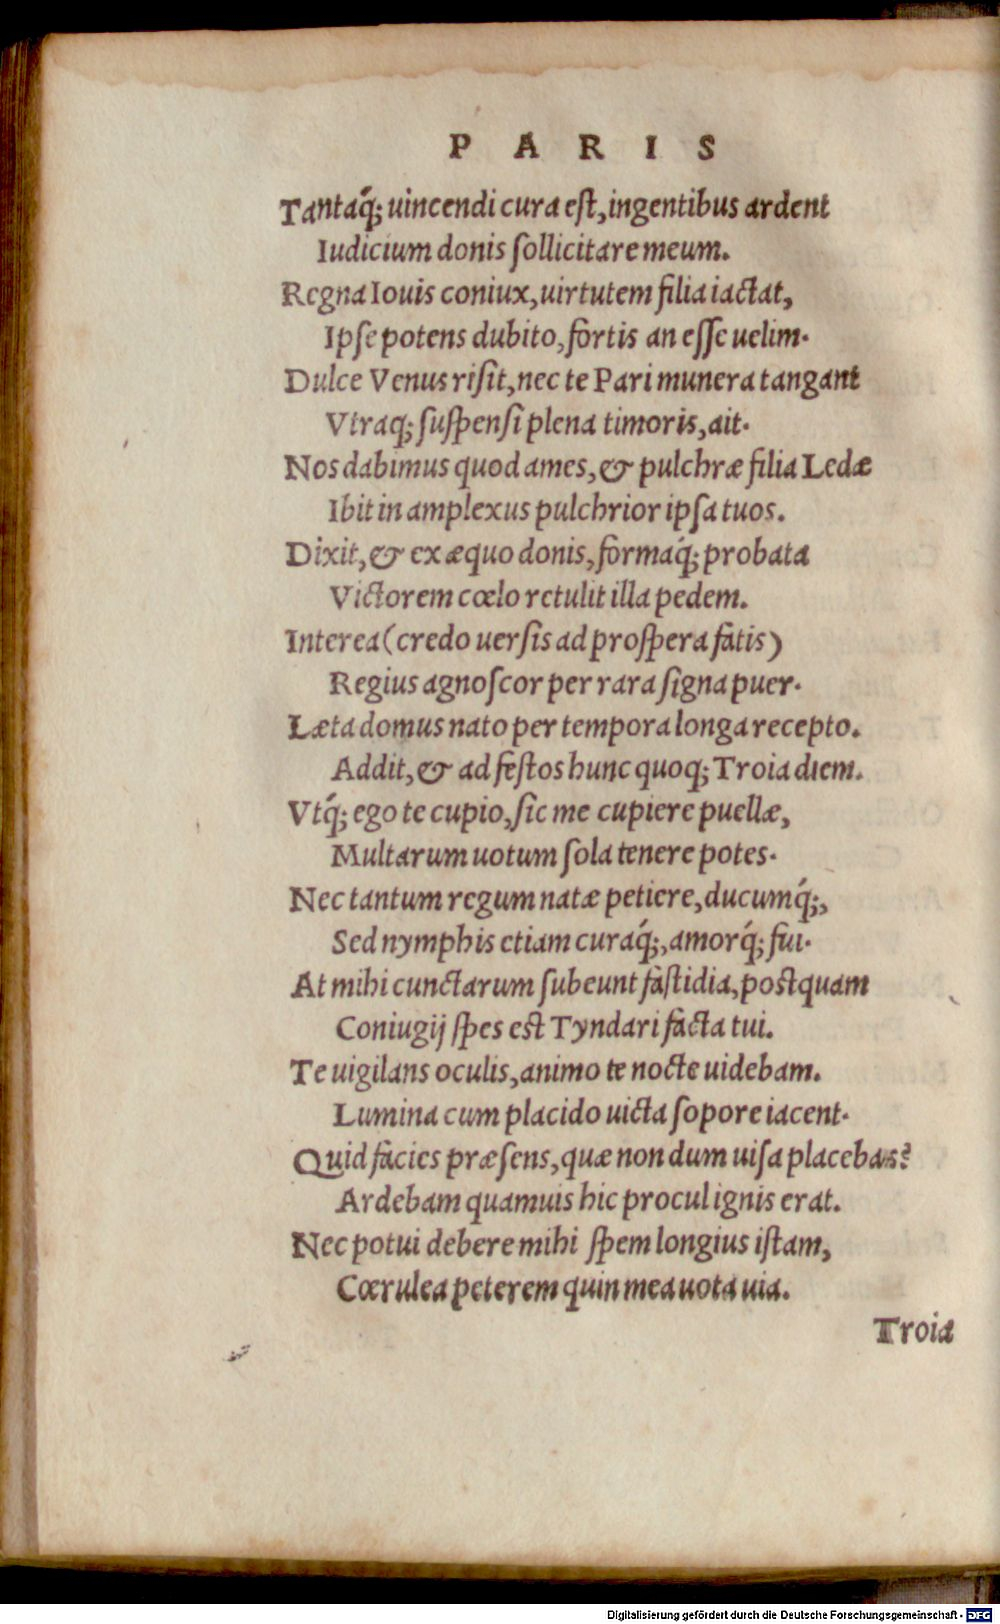 PARIS
Tantaq́; uincendi cura eſt, ingentibus ardent
Iudicium donis ſollicitare meum.
Regna Iouis coniux, uirtutem filia iactat,
Ipſe potens dubito, fortis an eſſe uelim.
Dulce Venus riſit, nec te Pari munera tangant
Vtraq; ſuſpenſi plena timoris, ait.
Nos dabimus quod ames, & pulchræ filia Ledæ
Ibit in amplexus pulchrior ipſa tuos.
Dixit, & ex æquo donis, formaq́; probata
Victorem cœlo retulit illa pedem.
Interea (credo uerſis ad proſpera fatis)
Regius agnoſcor per rara ſigna puer.
Læta domus nato per tempora longa recepto.
Addit, & ad feſtos hunc quoq; Troia diem.
Vtq́; ego te cupio, ſic me cupiere puellæ,
Multarum uotum ſola tenere potes.
Nec tantum regum natæ petiere, ducumq́;,
Sed nymphis etiam curaq́;, amorq́; fui.
At mihi cunctarum ſubeunt faſtidia, postquam
Coniugij ſpes est Tyndari facta tui.
Te uigilans oculis, animo te nocte uidebam.
Lumina cum placido uicta ſopore iacent.
Quid facies præſens, quæ non dum uiſa placebas?
Ardebam quamuis hic procul ignis erat.
Nec potui debere mihi ſpem longius iſtam,
Cœrulea peterem quin mea uota uia.
Troia
Digitalisierung gefördert durch die Deutsche Forschungsgemeinschaft - DFG